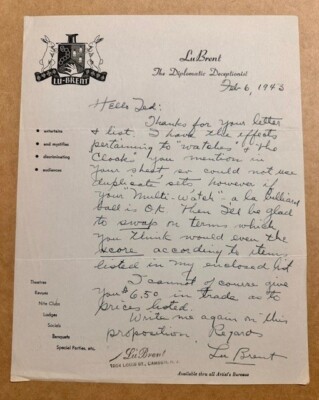 LU-BRENT
LuBrent
The Diplomatic Deceptionist
Feb 6, 1943
Hello Ted:
Thanks for your letter
& list. I have the effects
pertaining to "watches" & "the
Clocks" you mention in
your sheet so could not use
duplicate sets, however if
your "Multi-Watch" a la Billiard
ball is O.K. then I'll be glad
to swap on terms which
you think would even the
score according to items
listed in my enclosed list
I cannot of course give
you $6.50 in trade as to
prices listed.
Write me again on this
proposition. Regards
Lu Brent
entertains
and mystifies
discriminating
audiences
Theatres
Revues
Nite Clubs
Lodges
Socials
Banquets
Special Parties, etc.
LuBrent
Available thru all Artist's Bureaus